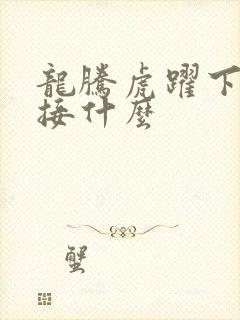 龍騰虎躍下
接什麼
蟹